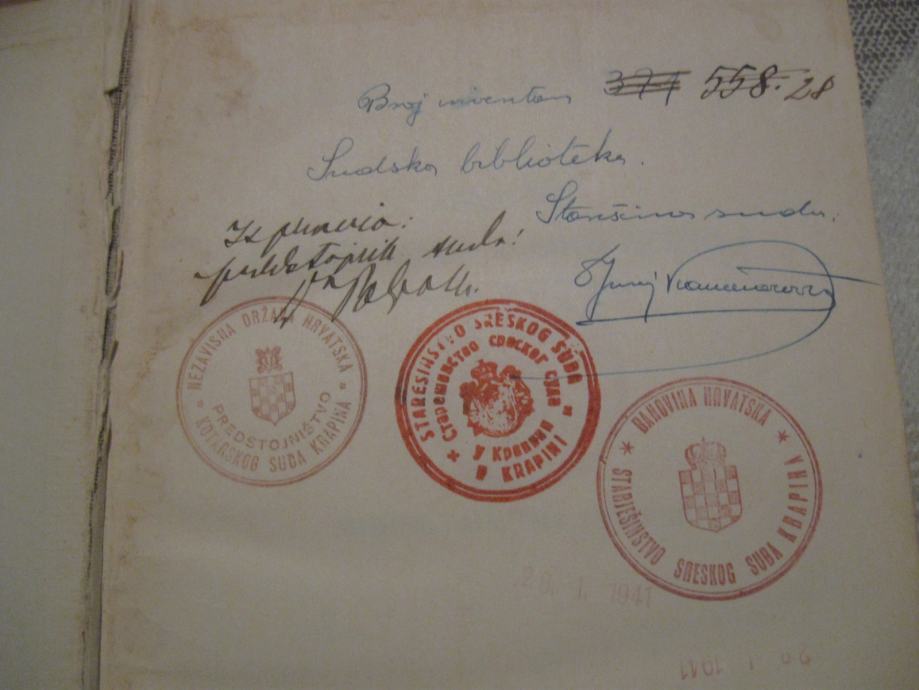 Broj inventara 371 558. 28
Sudska biblioteka.
Starešina suda:
Ispravio:
predstojnik suda:
NEZAVISNA DRŽAVA HRVATSKA
PREDSTOJNIŠTVO
KOTARSKOG SUDA KRAPINA
STAREŠINSTVO SRESKOG SUDA
Старешинство среског суда
у Крапини
U KRAPINI
BANOVINA HRVATSKA
STARJEŠINSTVO SRESKOG SUDA KRAPINA
26. 1. 1941